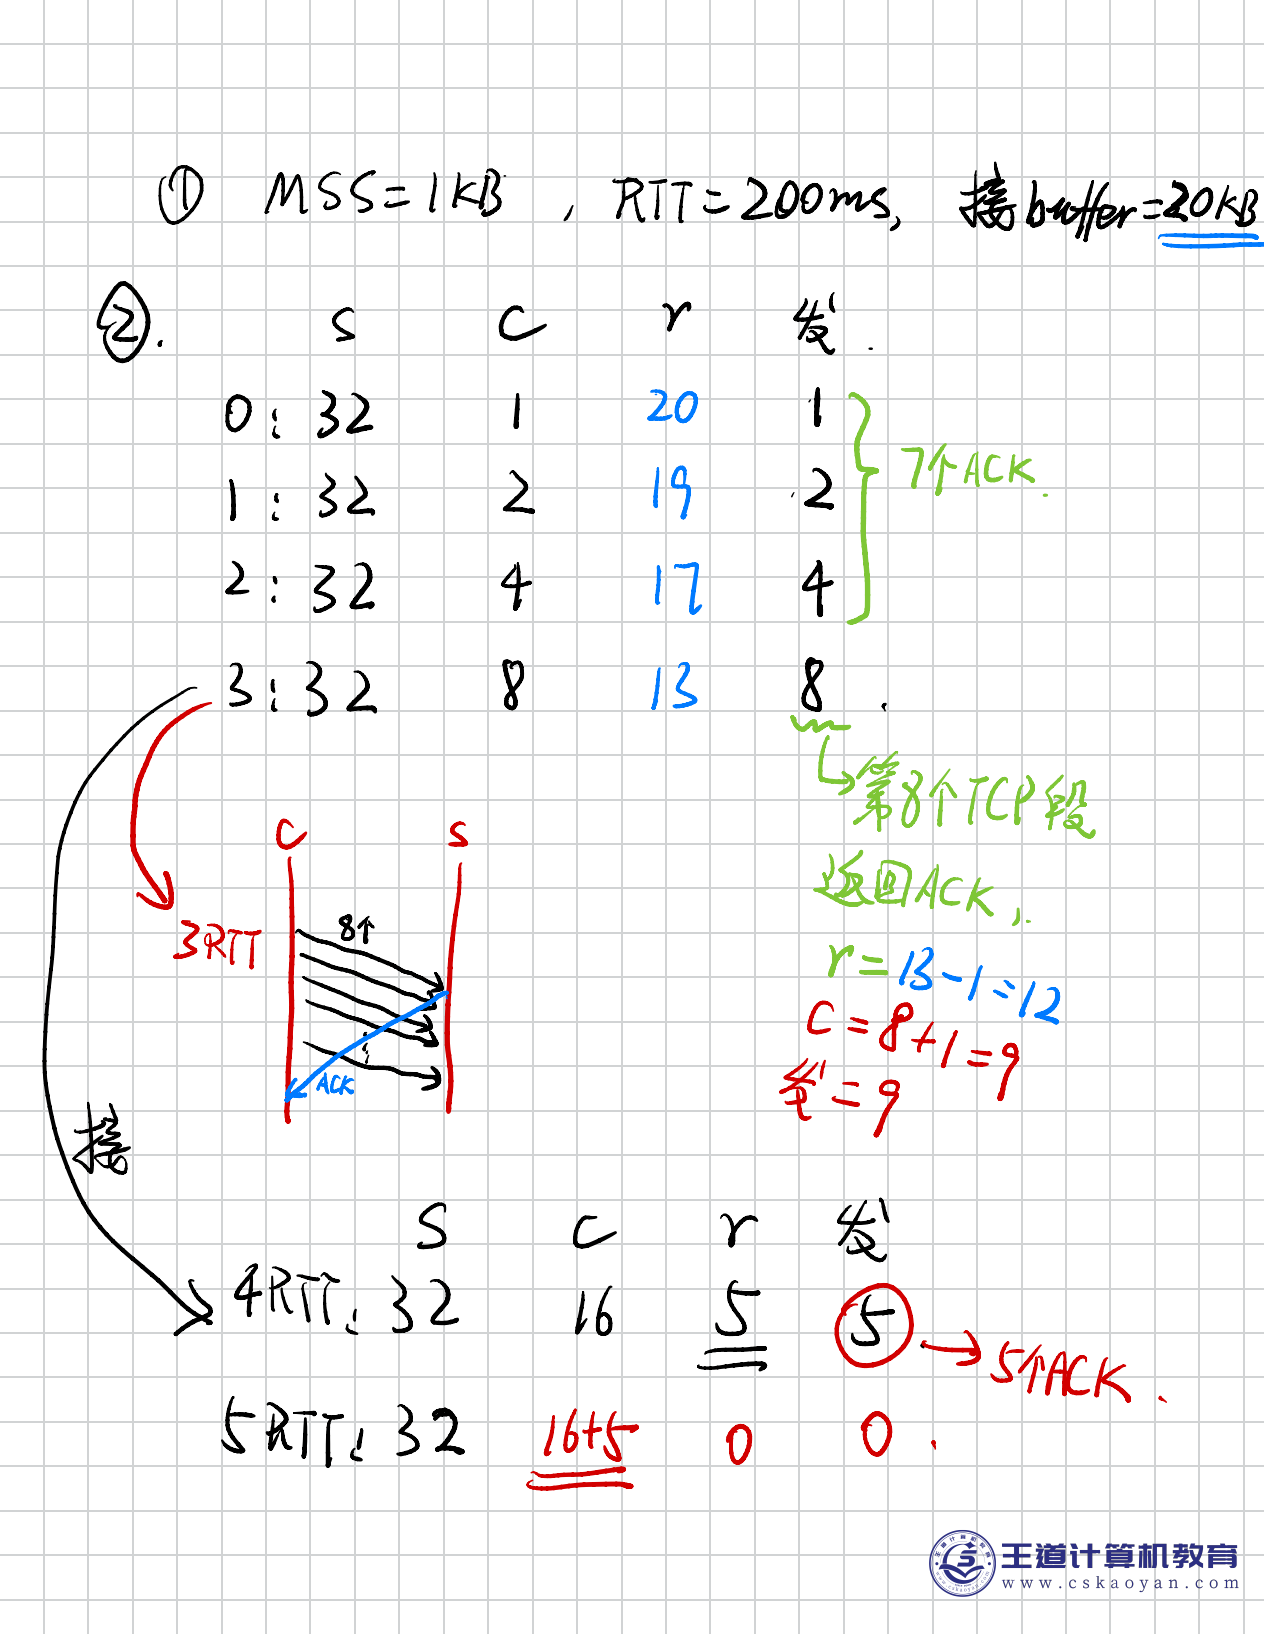 ① MSS=1KB, RTT=200ms, 接buffer=20KB
②. S C r 发.
0: 32 1 20 1
7个ACK.
1: 32 2 19 2
2: 32 4 17 4
3: 32 8 13 8.
第8个TCP段
返回ACK,
r=13-1=12
C=8+1=9
发=9
C S
3RTT
8个
ACK
接
S C r 发
4RTT: 32 16 5 5
5个ACK.
5RTT: 32 16+5 0 0.
王道计算机教育
www.cskaoyan.com